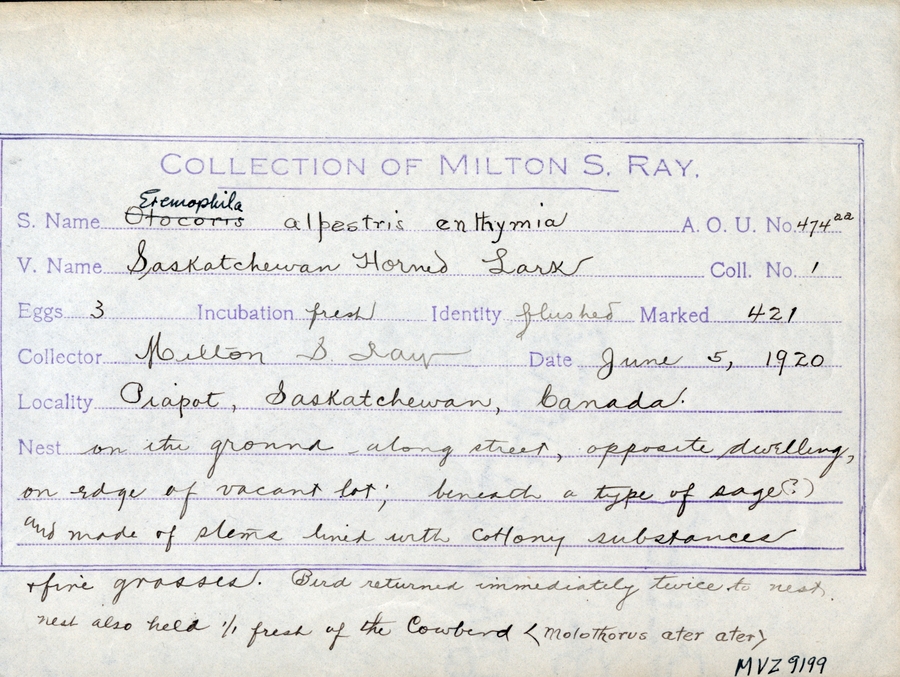 COLLECTION OF MILTON S. RAY.
Eremophila
S. Name Otocoris alpestris enthymia A. O. U. No. 474aa
V. Name Saskatchewan Horned Lark Coll. No. 1
Eggs 3 Incubation fresh Identity flushed Marked 421
Collector Milton S. Ray Date June 5, 1920
Locality Piapot, Saskatchewan, Canada.
Nest on the ground along street, opposite dwelling,
on edge of vacant lot; beneath a type of sage(?)
and made of stems lined with cottony substances
+ fine grasses. Bird returned immediately twice to nest.
nest also held 1/1 fresh of the Cowbird <Molothorus ater ater>
MVZ 9199